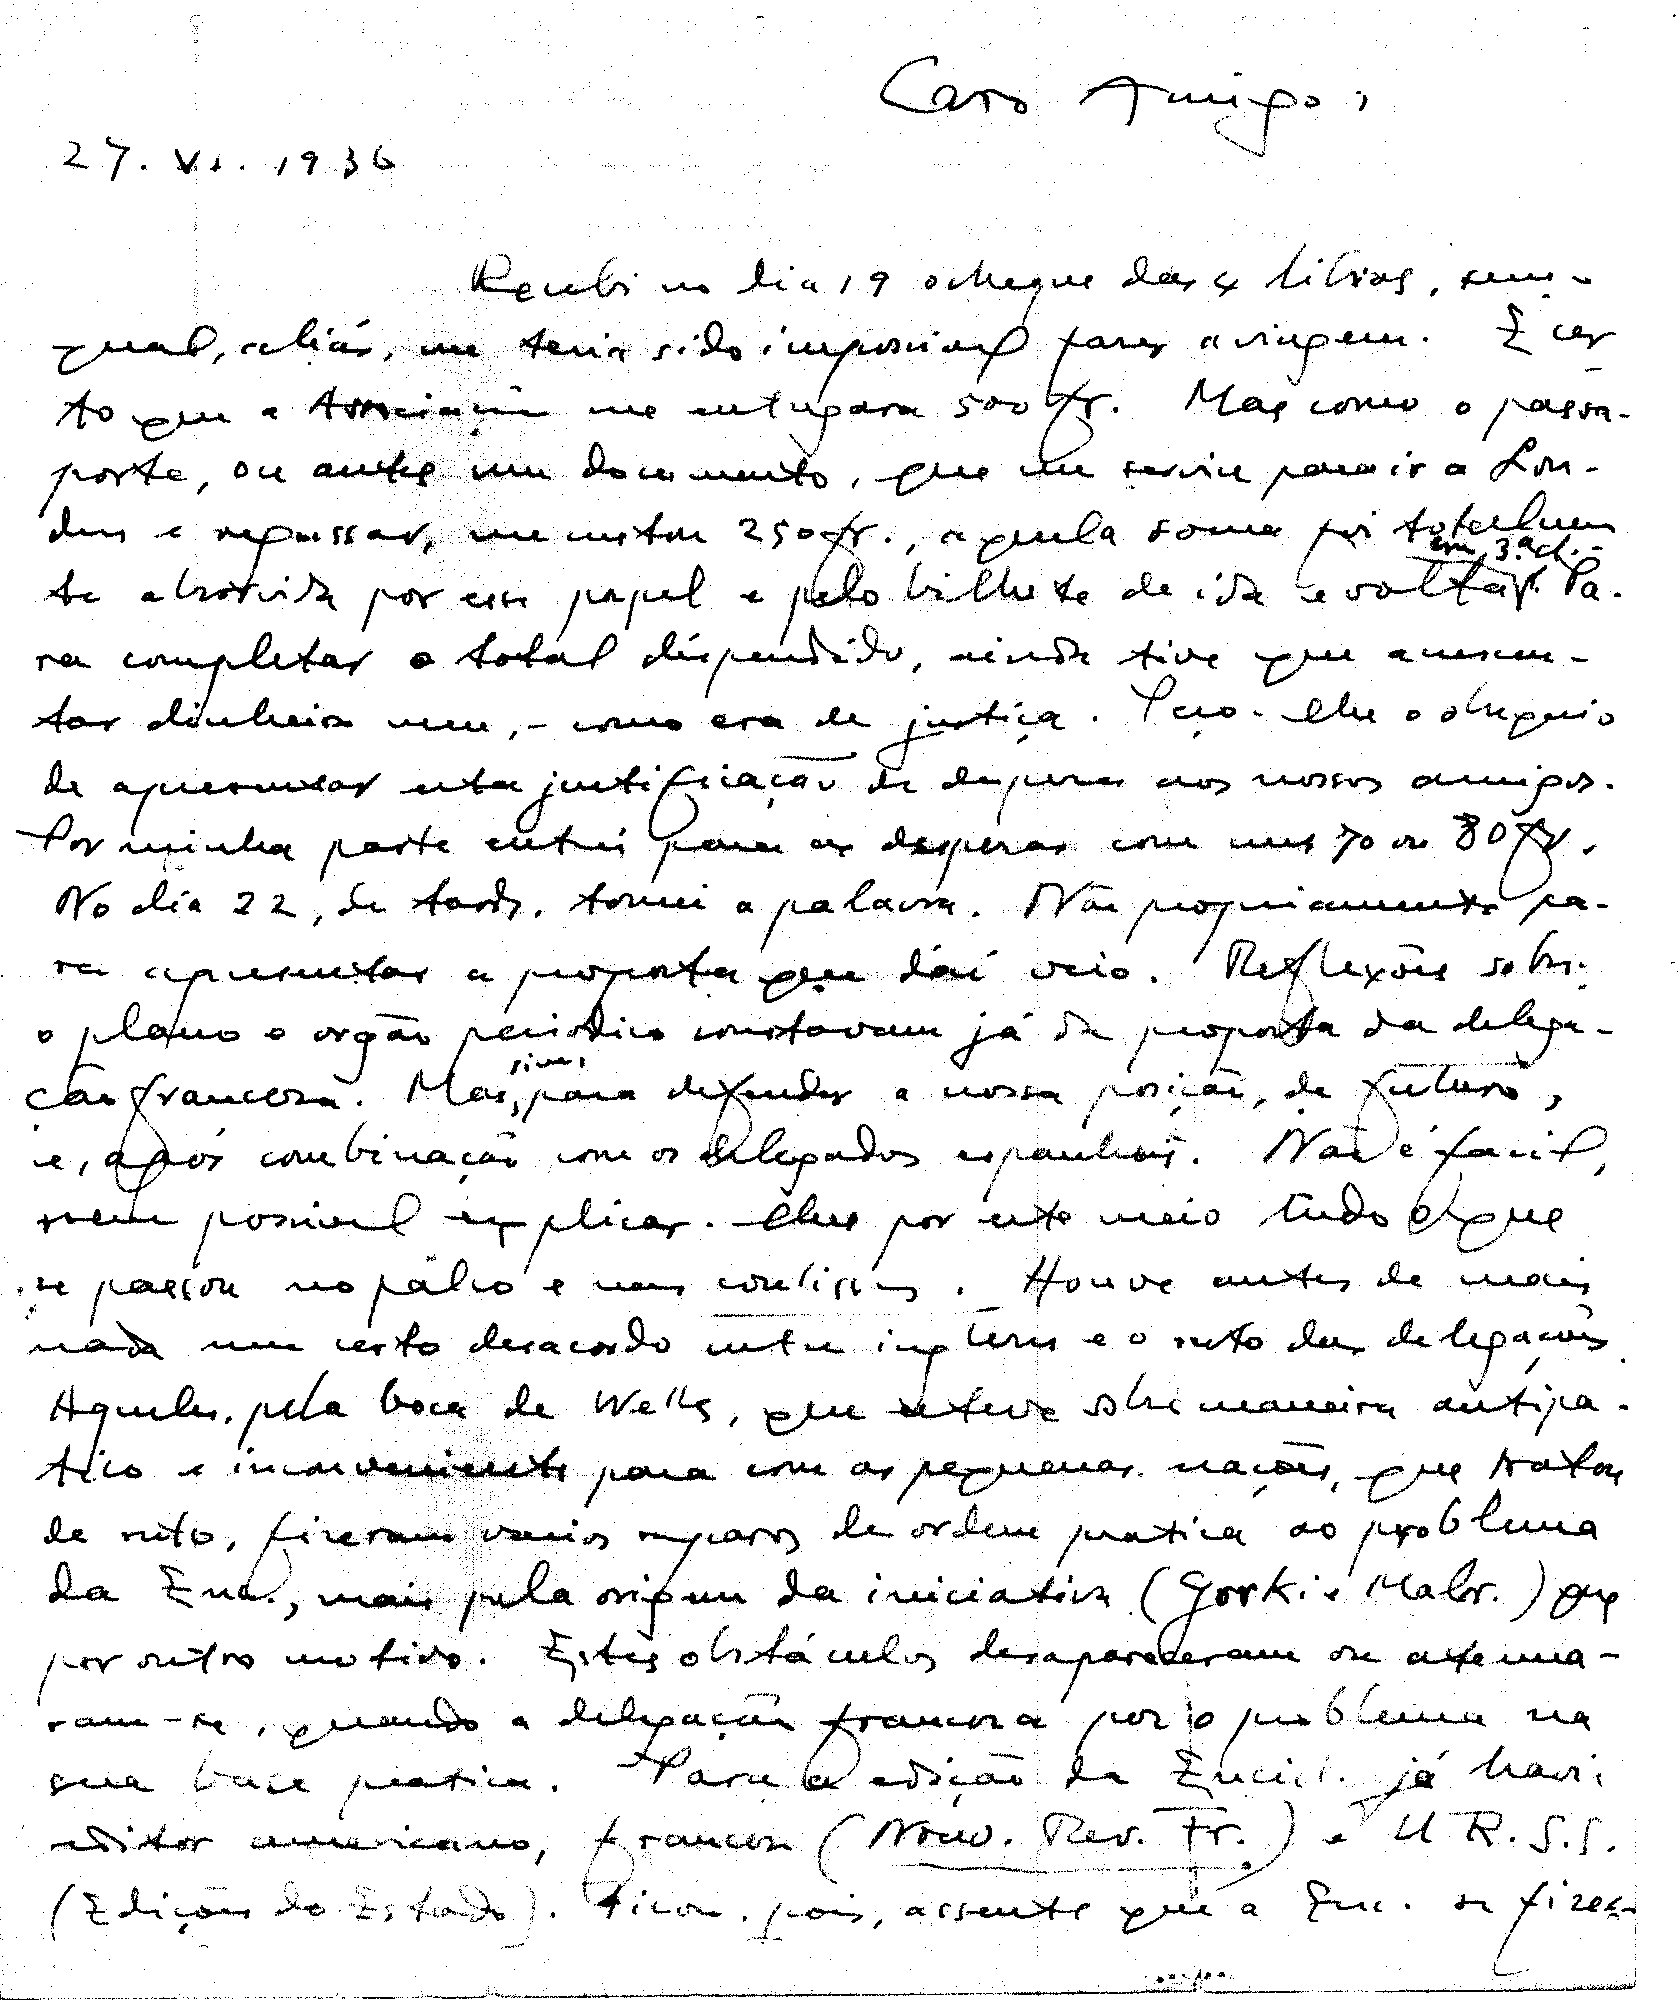 Caro Amigo:
27. VI. 1936
Recebi no dia 19 o cheque das 4 libras, sem o
qual, aliás, me teria sido impossivel fazer a viagem. É cer
to que a Associação me entregara 500 fr. Mas como o passa-
porte, ou antes um documento, que me servisse para ir a Lon-
dres e regressar, me custou 250 fr., aquela soma foi totalmen
em 3.ª cl.
te absorvida por esse papel e pelo bilhete de ida e volta. Pa-
ra completar o total dispendido, ainda tive que acrescen-
tar dinheiro meu, - como era de justiça. Peço-lhe o obsequio
de apresentar esta justificação de despesas aos nossos amigos.
Por minha parte entrei para as despesas com uns 70 ou 80 fr.
No dia 22, de tarde, tomei a palavra. Não propriamente pa-
ra apresentar a proposta que daí veio. Reflexões sobre
o plano e orgão periodico constavam já da proposta da delega-
sim,
ção francesa. Mas, para defender a nossa posição, de futuro,
e, após combinação com os delegados espanhois. Não é facil,
nem possivel explicar-lhes por este meio tudo o que
se passou no palco e nos coulisses. Houve antes de mais
nada um certo desacordo entre inglêses e o resto das delegações.
Aqueles, pela boca de Wells, que esteve sobremaneira antipa-
tico e inconveniente para com as pequenas nações, que tratou
de resto, fizeram varios reparos de ordem pratica ao problema
da Enc., mais pela origem da iniciativa (Gorki e Malr.) que
por outro motivo. Estes obstáculos desapareceram ou atenua-
ram-se, quando a delegação francesa pôs o problema na
sua base pratica. Para a edição da Encicl. já havia
editor americano, francês (Nouv. Rev. Fr.) e U R. S. S.
(Edições do Estado). Ficou, pois, assente que a Enc. se fizes-